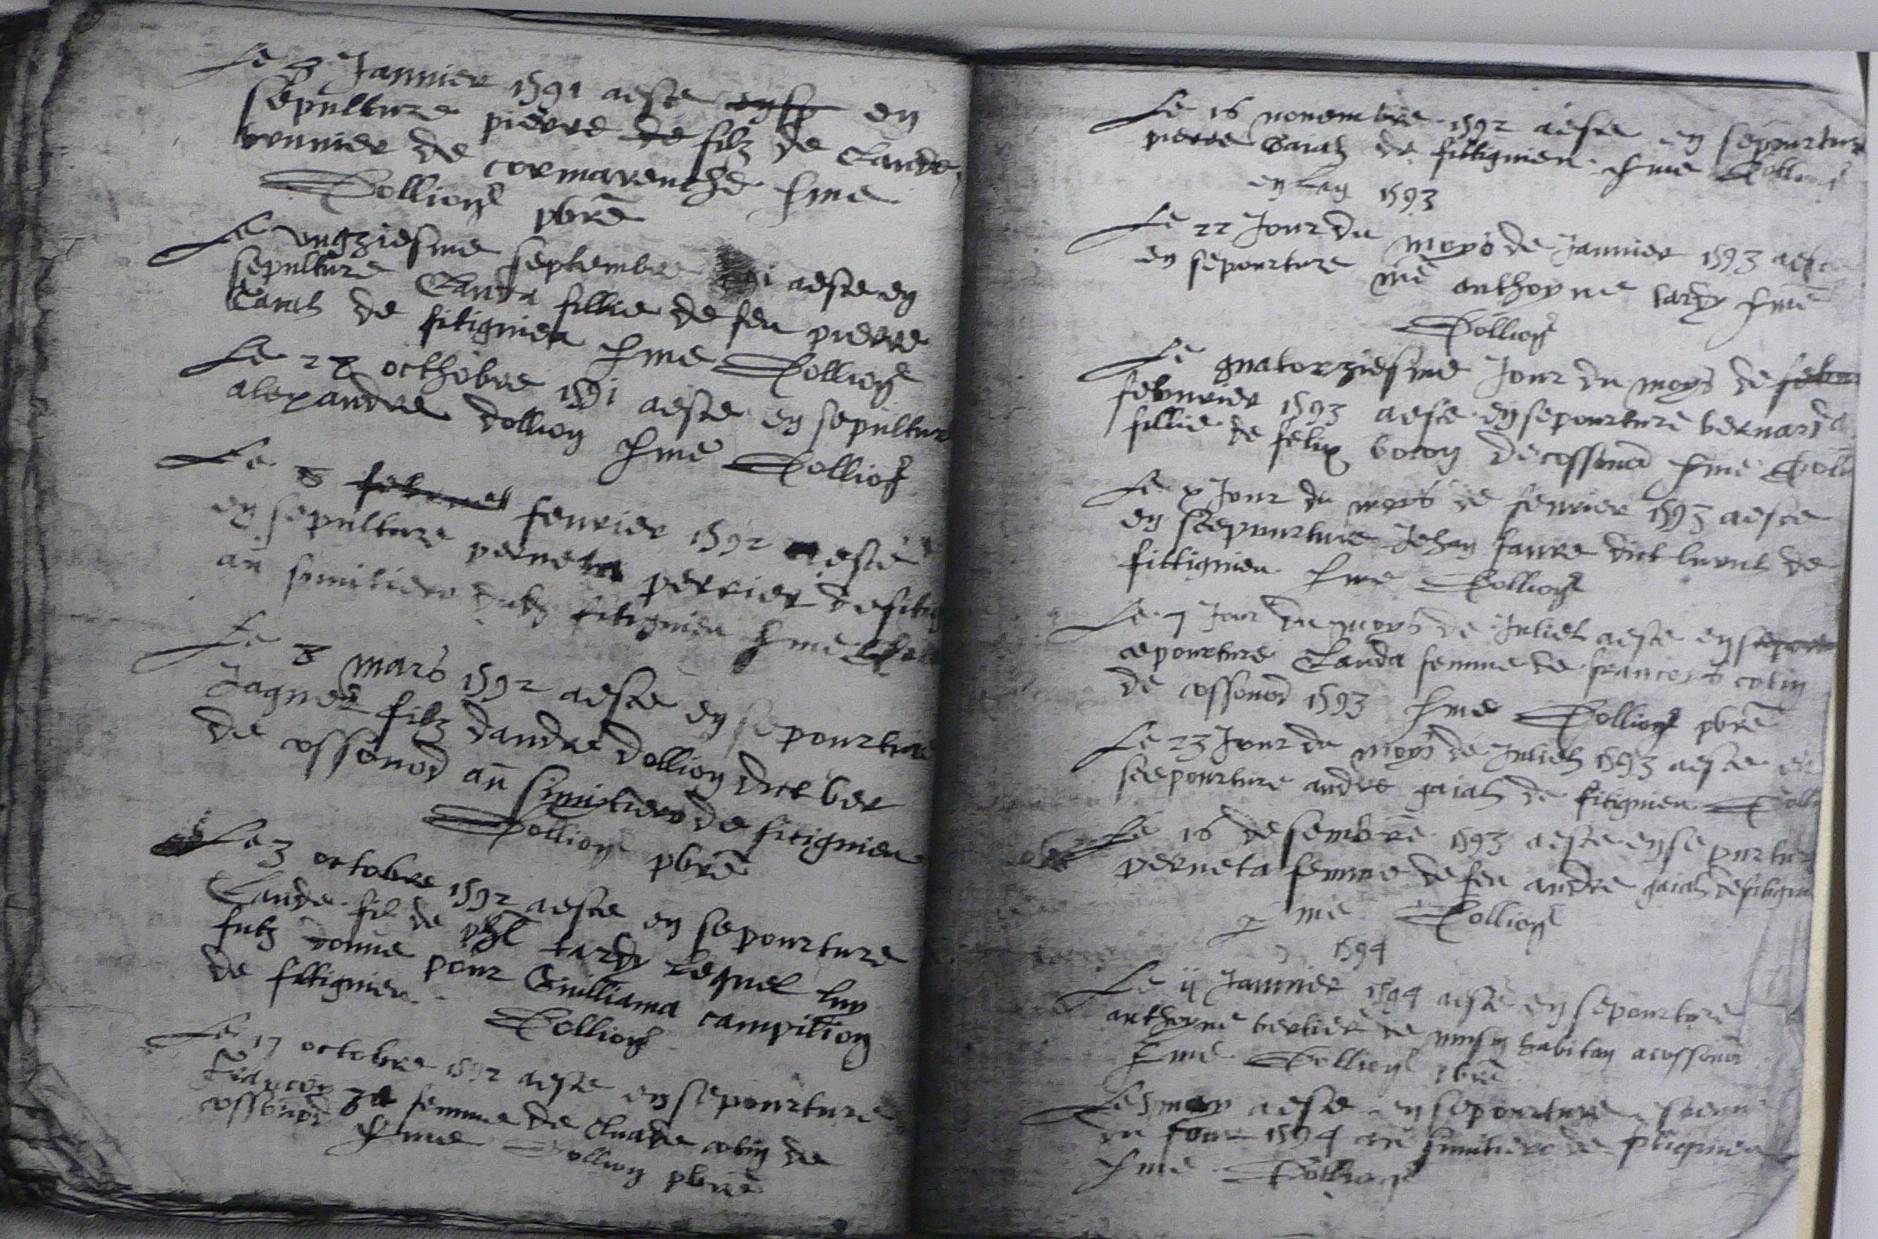 Le 3 Jannier 1591 aeste en
sepulture pierre de filz de Claude
de cormarenche hme
Dolliong pbre
Le ungziesme septembre aeste en
sepulture Clauda fillie de feu pierre
Caiah de fitignieu hme Dolliong
Le 22 octhobre 1591 aeste en sepultur
alexandre dolliong hme Dolliong
Le 8 feurier 1592 aeste
en sepulture perneta perrier de fitig
au simitiere dudit fitignieu hme
Le 8 mars 1592 aeste en sepourture
Jaques filz dandre dollion dict ber
de ossonod au simitiere de fitignieu
Dolliong pbre
Le 3 octobre 1592 aeste en sepourture
Claude fil de phl tardy lequel luy
fut donne pour Guilliama campillion
de fittignieu Dolliong
Le 17 octobre 1592 aeste en sepourture
femme de Cluade colin de
ossonod hme Dolliong pbre
Le 16 nouembre 1592 aeste en sepourture
pierre Gaiah de fittignieu hme Dolliong
en lan 1593
Le 22 Jour du moys de Jannier 1593 aeste
en sepourture me anthoyne tardy hme
Dolliong
Le quatorziesme Jour du moys de
februrier 1593 aeste en sepourture bernarda
fillie de felix boton de cossonod hme Dolli
Le x Jour du moys de feurier 1593 aeste
en seepourture Jehan faure dict de
fittignieu hme Dolliong
Le 7 Jour du moys de Juliet aeste en
epourture Clauda femme de francoys colin
de cossonod 1593 hme Dolliong pbre
Le 23 Jour du moys de Julieh 1593 aeste en
seepourture andre gaiah de fitignieu Dolli
Le 16 desembre 1593 aeste en se purtur
perneta femme de feu andre gaiah de fitignieu
hme Dolliong
1594
Le ij Jannier 1594 aeste en sepourture
anthoyne bertier de habitan a cossonod
hme Dolliong pbre
Le may aeste en sepourture
du four 1594 au simitiere de fitignieu
hme Dolliong